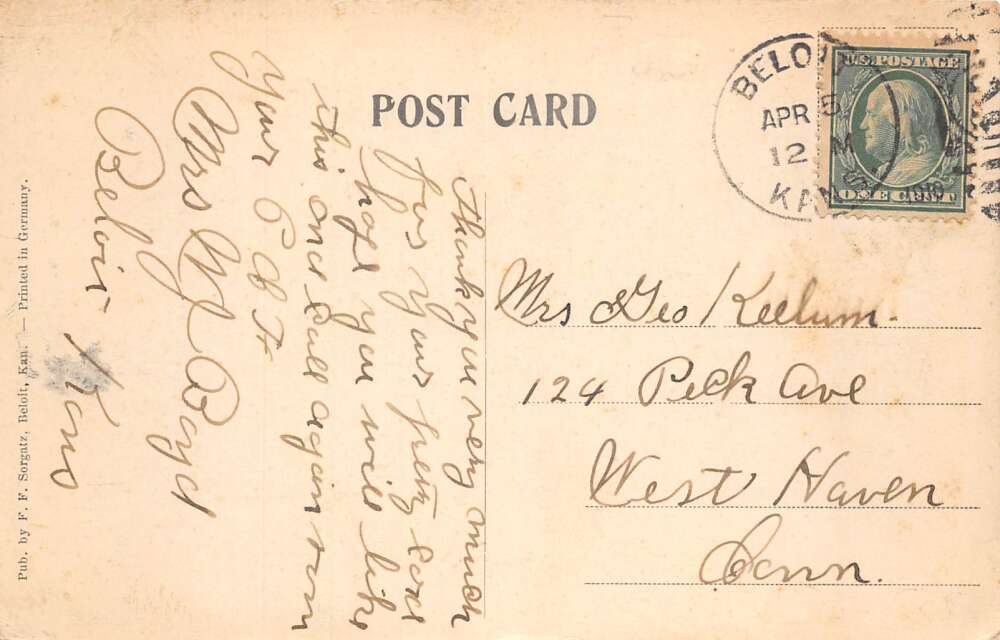 POST CARD
BELOIT
APR 5
12 M
KAN.
1910
U.S. POSTAGE
ONE CENT
Thank you very much
for your prety card
I hope you will like
this one call again soon
your C C F
Mrs W J Boyd
Beloit Kans
Mrs Geo Kellum.
124 Peck Ave
West Haven
Conn.
Pub. by F. F. Sorgatz, Beloit, Kan. — Printed in Germany.